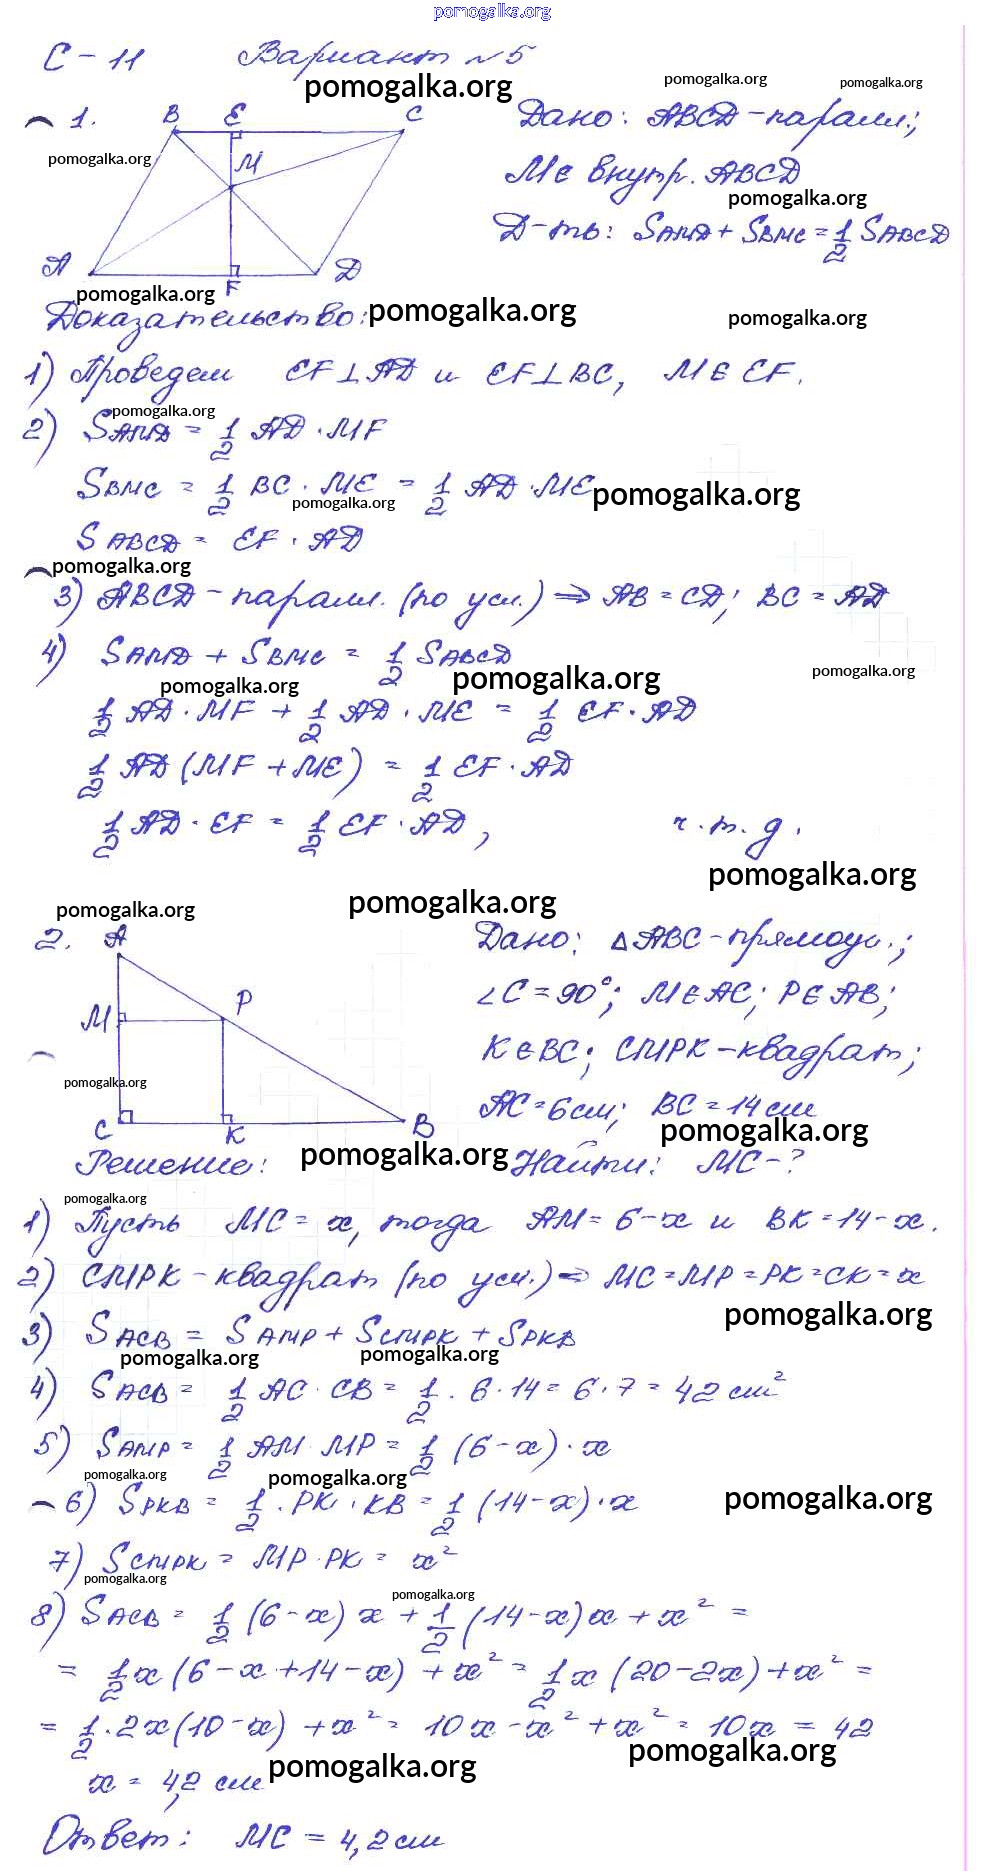 pomogalka.org
С-11 Вариант №5
pomogalka.org pomogalka.org pomogalka.org
1. B E C Дано: ABCD-паралл.;
pomogalka.org M M∈ внутр. ABCD
pomogalka.org
Д-ть: SAMD + SBMC = 1/2 SABCD
A F D
pomogalka.org
Доказательство: pomogalka.org pomogalka.org
1) Проведем EF⊥AD и EF⊥BC, M∈EF.
pomogalka.org
2) SAMD = 1/2 AD·MF
SBMC = 1/2 BC·ME = 1/2 AD·ME pomogalka.org
pomogalka.org
SABCD = EF·AD
pomogalka.org
3) ABCD-паралл. (по усл.) ⇒ AB=CD; BC=AD
4) SAMD + SBMC = 1/2 SABCD
pomogalka.org pomogalka.org pomogalka.org
1/2 AD·MF + 1/2 AD·ME = 1/2 EF·AD
1/2 AD(MF+ME) = 1/2 EF·AD
1/2 AD·EF = 1/2 EF·AD, ч.т.д.
pomogalka.org
pomogalka.org pomogalka.org
2. A Дано: △ABC-прямоуг.;
M P ∠C=90°; M∈AC; P∈AB;
K∈BC; CMPK-квадрат;
pomogalka.org
AC=6см; BC=14см
C K B pomogalka.org
Решение: pomogalka.org Найти: MC-?
pomogalka.org
1) Пусть MC=x, тогда AM=6-x и BK=14-x.
2) CMPK-квадрат (по усл.) ⇒ MC=MP=PK=CK=x
pomogalka.org
3) SACB = SAMP + SCMPK + SPKB
pomogalka.org pomogalka.org
4) SACB = 1/2 AC·CB = 1/2·6·14=6·7=42 см²
5) SAMP = 1/2 AM·MP = 1/2 (6-x)·x
pomogalka.org pomogalka.org
6) SPKB = 1/2·PK·KB = 1/2 (14-x)·x pomogalka.org
7) SCMPK = MP·PK = x²
pomogalka.org pomogalka.org
8) SACB = 1/2 (6-x)x + 1/2 (14-x)x + x² =
= 1/2 x(6-x+14-x) + x² = 1/2 x(20-2x)+x² =
= 1/2·2x(10-x) + x² = 10x-x²+x² = 10x = 42
pomogalka.org pomogalka.org
x = 4,2 см
Ответ: MC = 4,2см